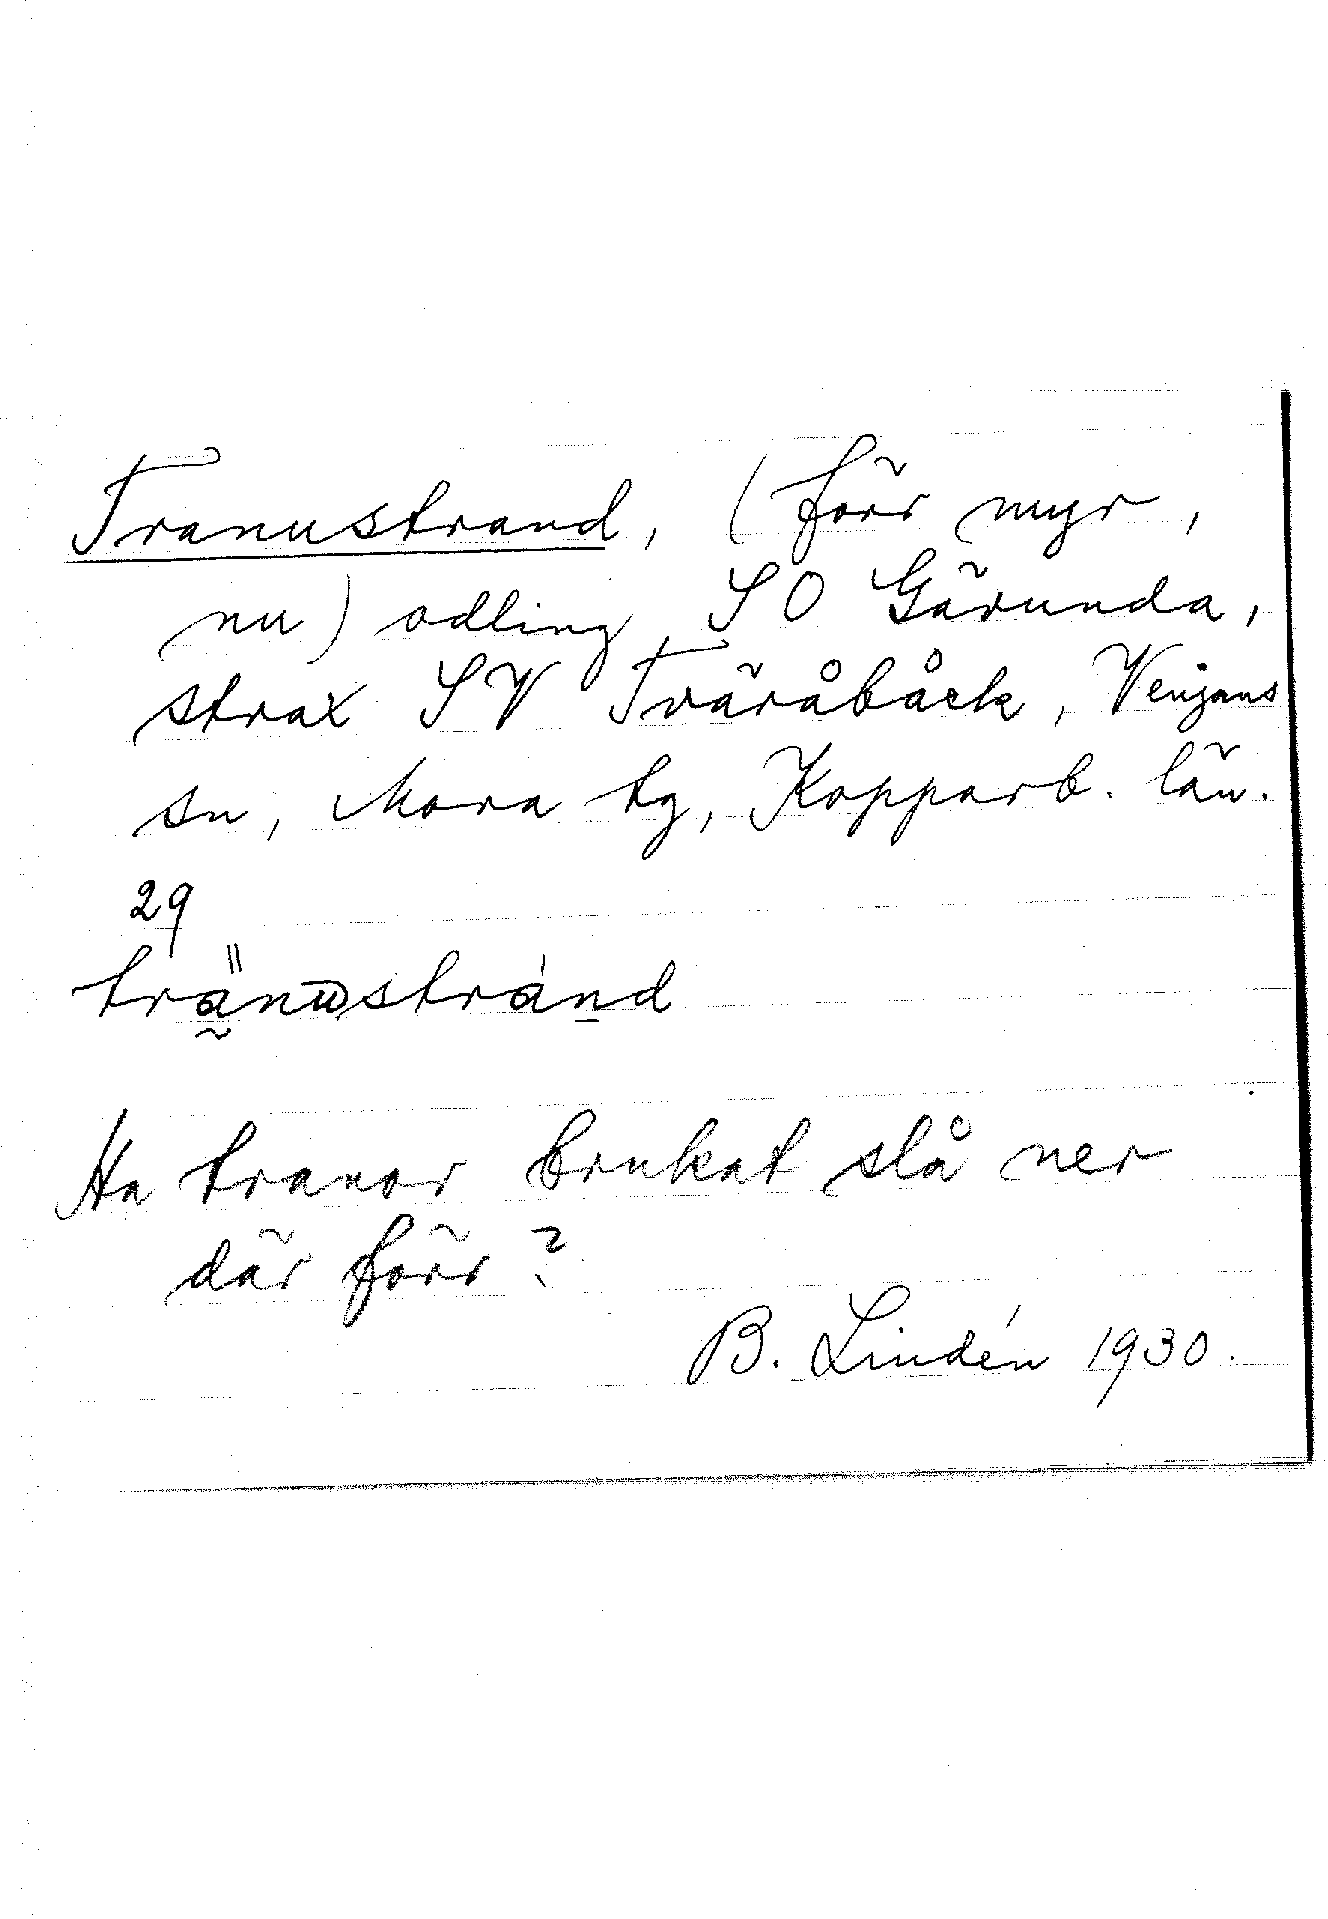 Tranustrand, (förr myr,
nu) odling, SO Gärunda,
strax SV Tväråbåck, Venjans
sn, Mora tg, Kopparb. län.
29
Ha tranor brukat slå ner
där förr?
B. Lindén 1930.